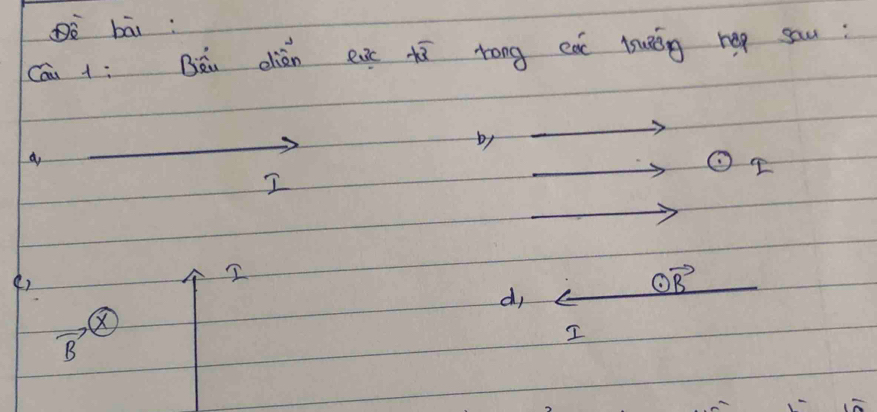 Đề bài :
Câu 1 : Biểu diễn lực từ trong các trường hợp sau :
a, I
b, I
c, I
B
d, B
I